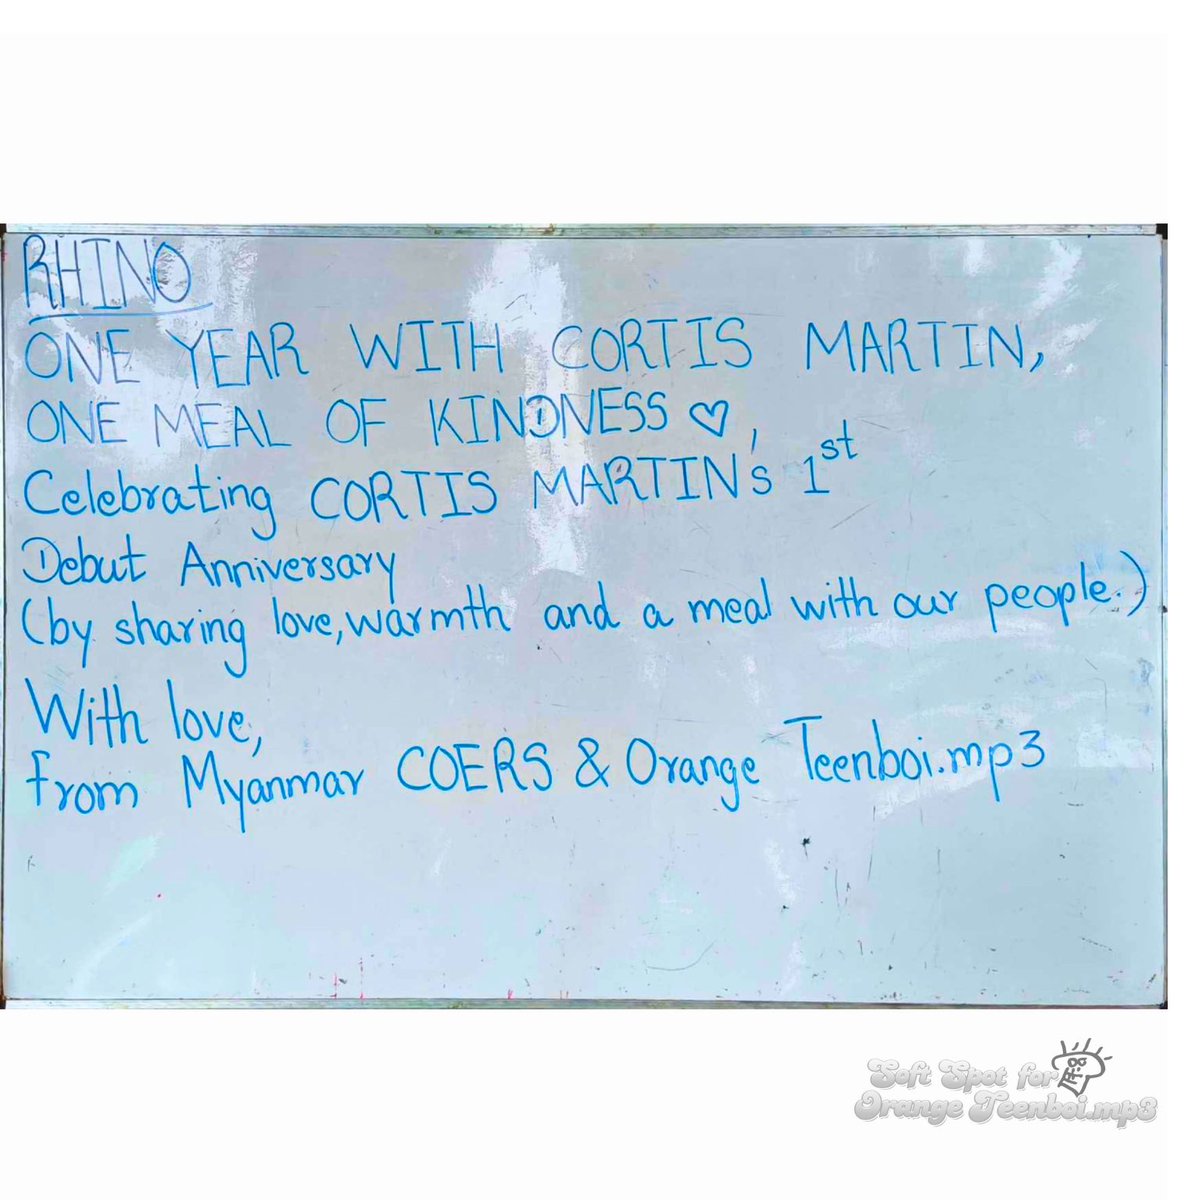 RHINO
ONE YEAR WITH CORTIS MARTIN,
ONE MEAL OF KINDNESS ♡,
Celebrating CORTIS MARTIN's 1st
Debut Anniversary
(by sharing love, warmth and a meal with our people.)
With love,
from Myanmar COERS & Orange Teenboi.mp3
Soft Spot for
Orange Teenboi.mp3